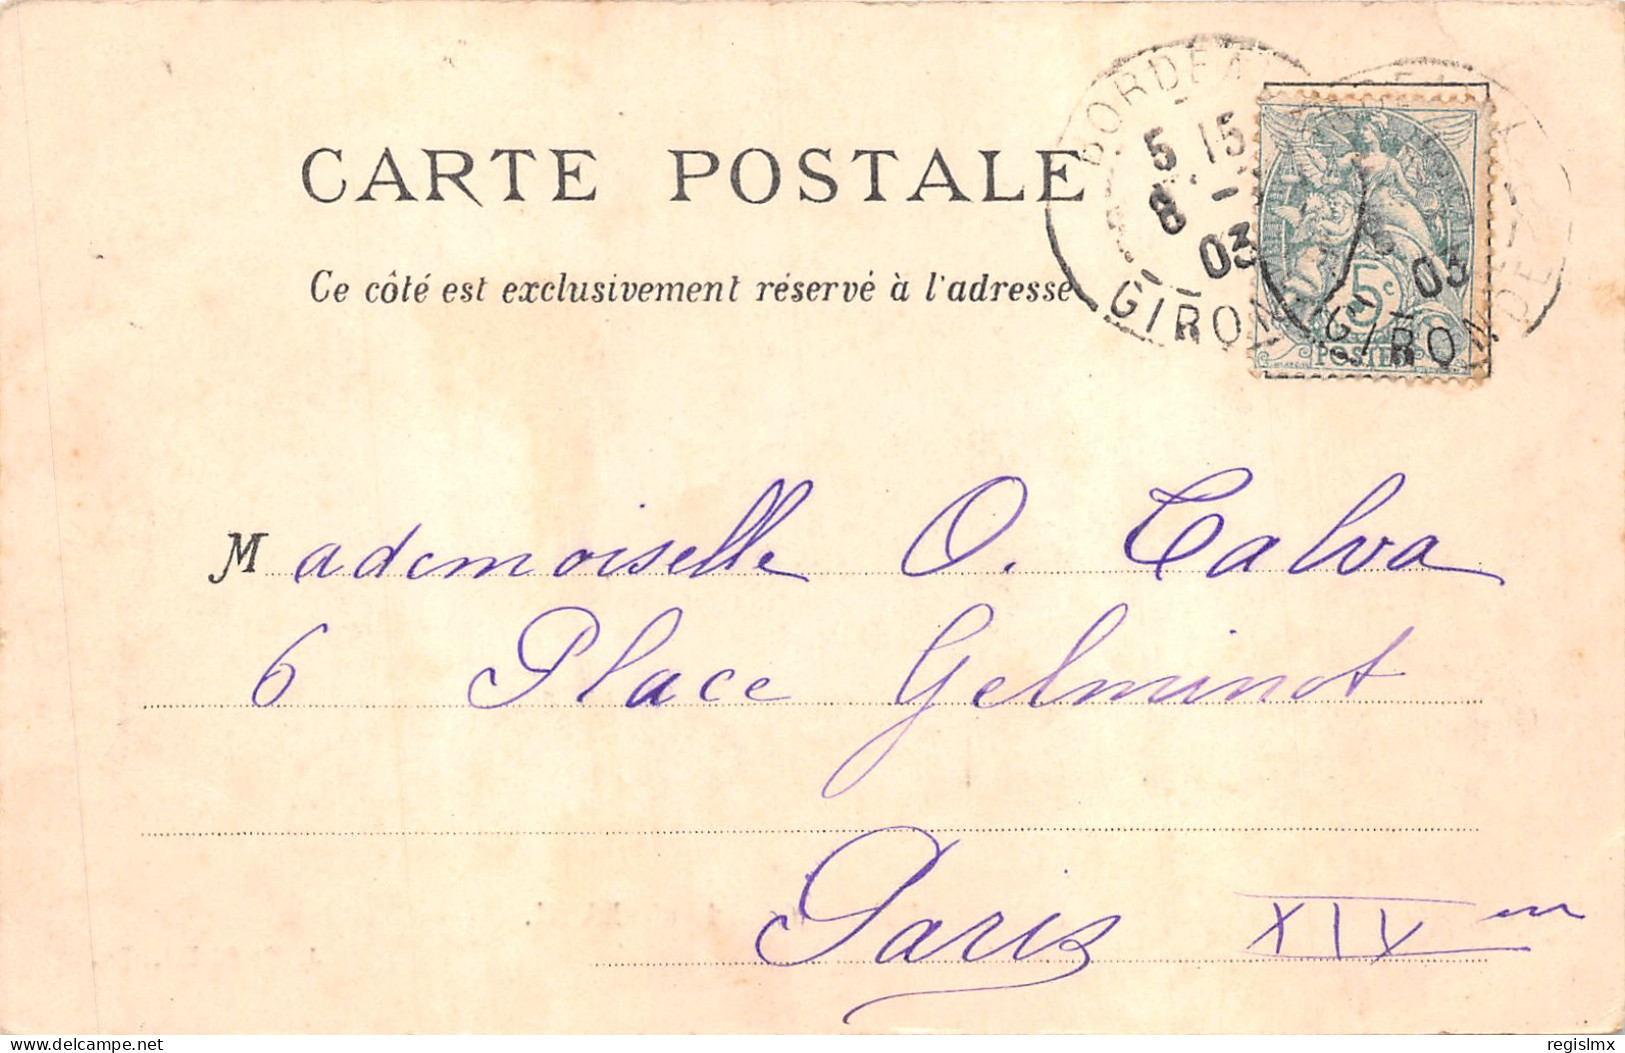 CARTE POSTALE
Ce côté est exclusivement réservé à l'adresse
BORDEA
5 15
8 -
03
GIRON
8
03
GIRONDE
5c
POSTES
Mademoiselle O. Calva
6 Place Gelminot
Paris XIXm
delcampe.net
regislmx